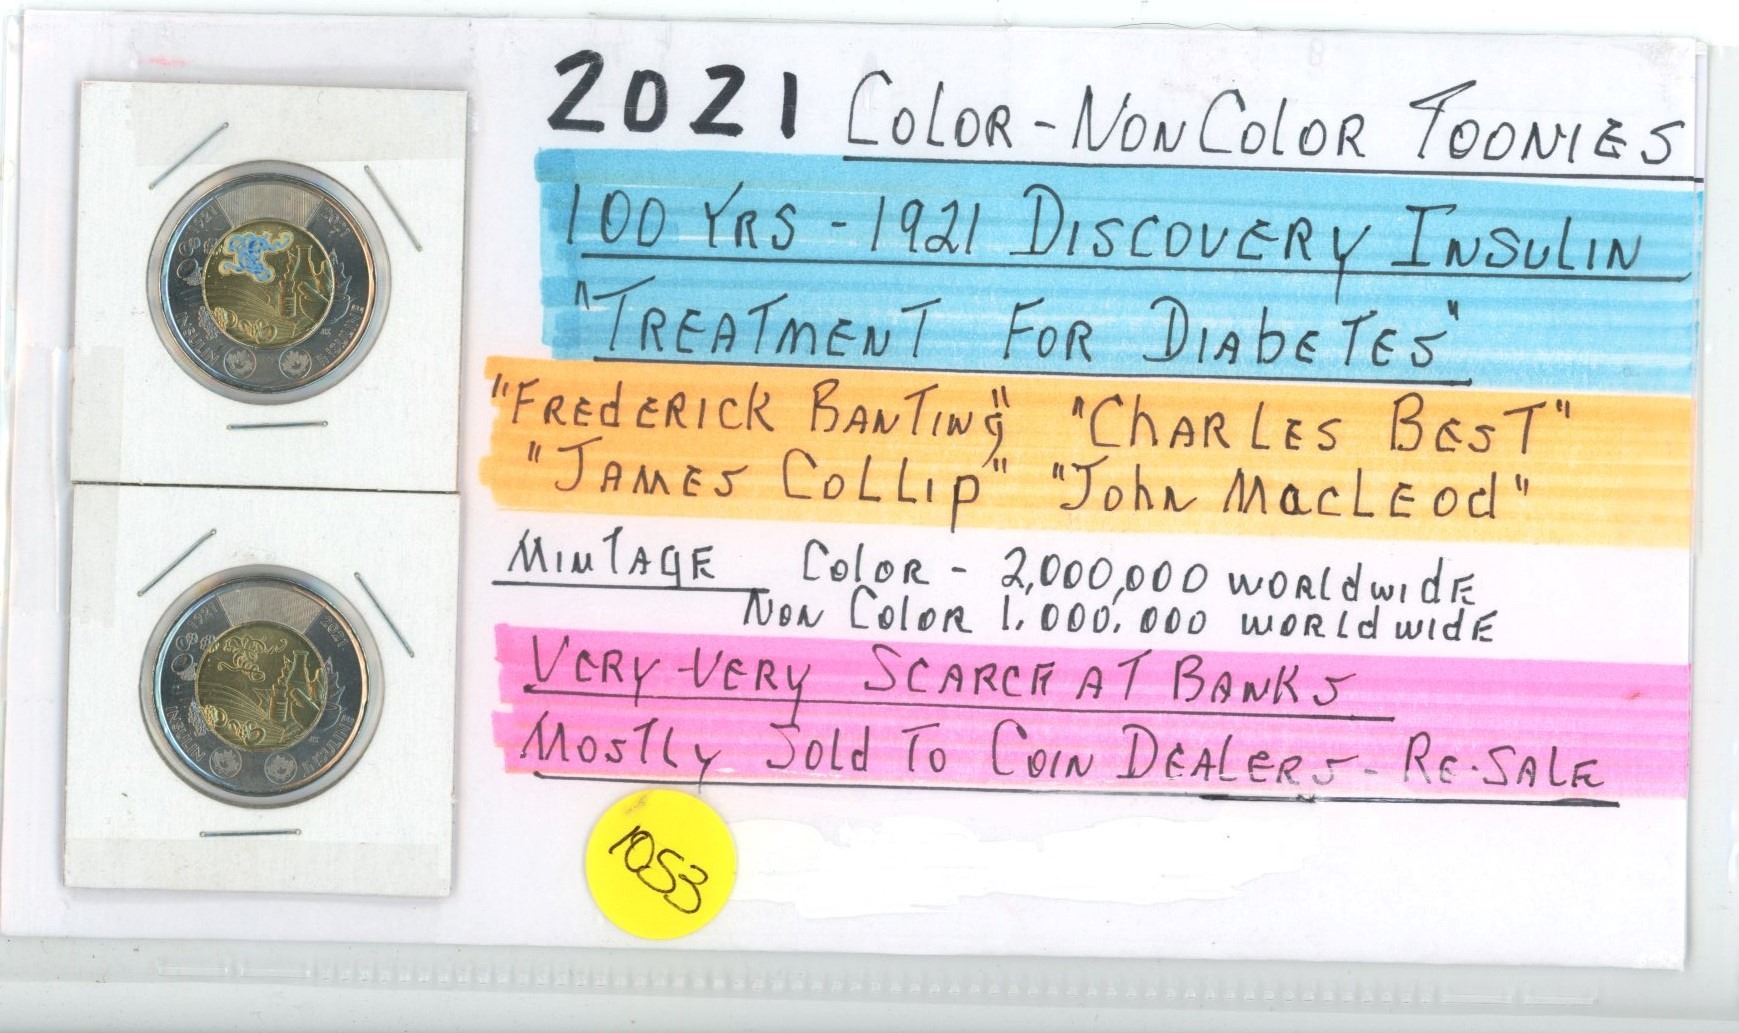 2021 COLOR - NON COLOR TOONIES
100 YRS - 1921 DISCOVERY INSULIN
"TREATMENT FOR DIABETES"
"FREDERICK BANTING" "CHARLES BEST"
"JAMES COLLIP" "JOHN MACLEOD"
MINTAGE COLOR - 2,000,000 WORLDWIDE
NON COLOR 1,000,000 WORLDWIDE
VERY-VERY SCARCE AT BANKS
MOSTLY SOLD TO COIN DEALERS - RE-SALE
1053
1921 2021
INSULIN INSULINE
1921 2021
INSULIN INSULINE